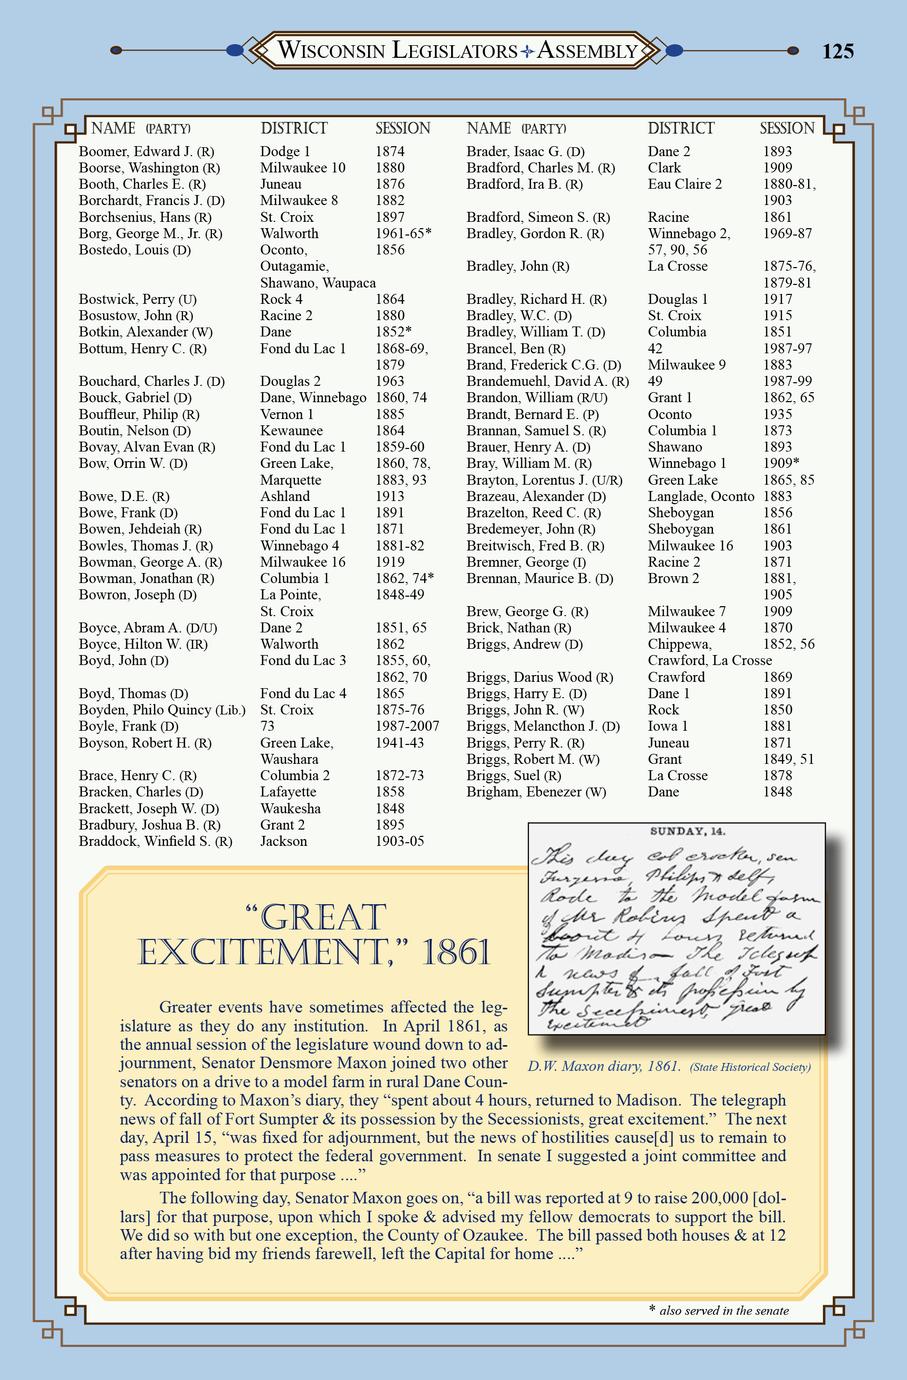 WISCONSIN LEGISLATORS ASSEMBLY
125
NAME (PARTY) DISTRICT SESSION
Boomer, Edward J. (R) Dodge 1 1874
Boorse, Washington (R) Milwaukee 10 1880
Booth, Charles E. (R) Juneau 1876
Borchardt, Francis J. (D) Milwaukee 8 1882
Borchsenius, Hans (R) St. Croix 1897
Borg, George M., Jr. (R) Walworth 1961-65*
Bostedo, Louis (D) Oconto, 1856
Outagamie,
Shawano, Waupaca
Bostwick, Perry (U) Rock 4 1864
Bosustow, John (R) Racine 2 1880
Botkin, Alexander (W) Dane 1852*
Bottum, Henry C. (R) Fond du Lac 1 1868-69,
1879
Bouchard, Charles J. (D) Douglas 2 1963
Bouck, Gabriel (D) Dane, Winnebago 1860, 74
Bouffleur, Philip (R) Vernon 1 1885
Boutin, Nelson (D) Kewaunee 1864
Bovay, Alvan Evan (R) Fond du Lac 1 1859-60
Bow, Orrin W. (D) Green Lake, 1860, 78,
Marquette 1883, 93
Bowe, D.E. (R) Ashland 1913
Bowe, Frank (D) Fond du Lac 1 1891
Bowen, Jehdeiah (R) Fond du Lac 1 1871
Bowles, Thomas J. (R) Winnebago 4 1881-82
Bowman, George A. (R) Milwaukee 16 1919
Bowman, Jonathan (R) Columbia 1 1862, 74*
Bowron, Joseph (D) La Pointe, 1848-49
St. Croix
Boyce, Abram A. (D/U) Dane 2 1851, 65
Boyce, Hilton W. (IR) Walworth 1862
Boyd, John (D) Fond du Lac 3 1855, 60,
1862, 70
Boyd, Thomas (D) Fond du Lac 4 1865
Boyden, Philo Quincy (Lib.) St. Croix 1875-76
Boyle, Frank (D) 73 1987-2007
Boyson, Robert H. (R) Green Lake, 1941-43
Waushara
Brace, Henry C. (R) Columbia 2 1872-73
Bracken, Charles (D) Lafayette 1858
Brackett, Joseph W. (D) Waukesha 1848
Bradbury, Joshua B. (R) Grant 2 1895
Braddock, Winfield S. (R) Jackson 1903-05
NAME (PARTY) DISTRICT SESSION
Brader, Isaac G. (D) Dane 2 1893
Bradford, Charles M. (R) Clark 1909
Bradford, Ira B. (R) Eau Claire 2 1880-81,
1903
Bradford, Simeon S. (R) Racine 1861
Bradley, Gordon R. (R) Winnebago 2, 1969-87
57, 90, 56
Bradley, John (R) La Crosse 1875-76,
1879-81
Bradley, Richard H. (R) Douglas 1 1917
Bradley, W.C. (D) St. Croix 1915
Bradley, William T. (D) Columbia 1851
Brancel, Ben (R) 42 1987-97
Brand, Frederick C.G. (D) Milwaukee 9 1883
Brandemuehl, David A. (R) 49 1987-99
Brandon, William (R/U) Grant 1 1862, 65
Brandt, Bernard E. (P) Oconto 1935
Brannan, Samuel S. (R) Columbia 1 1873
Brauer, Henry A. (D) Shawano 1893
Bray, William M. (R) Winnebago 1 1909*
Brayton, Lorentus J. (U/R) Green Lake 1865, 85
Brazeau, Alexander (D) Langlade, Oconto 1883
Brazelton, Reed C. (R) Sheboygan 1856
Bredemeyer, John (R) Sheboygan 1861
Breitwisch, Fred B. (R) Milwaukee 16 1903
Bremner, George (I) Racine 2 1871
Brennan, Maurice B. (D) Brown 2 1881,
1905
Brew, George G. (R) Milwaukee 7 1909
Brick, Nathan (R) Milwaukee 4 1870
Briggs, Andrew (D) Chippewa, 1852, 56
Crawford, La Crosse
Briggs, Darius Wood (R) Crawford 1869
Briggs, Harry E. (D) Dane 1 1891
Briggs, John R. (W) Rock 1850
Briggs, Melancthon J. (D) Iowa 1 1881
Briggs, Perry R. (R) Juneau 1871
Briggs, Robert M. (W) Grant 1849, 51
Briggs, Suel (R) La Crosse 1878
Brigham, Ebenezer (W) Dane 1848
SUNDAY, 14.
This day col crocker, sen
Philips & self,
Rode to the Model farm
of Mr Robins Spent a
bout 4 hours returned
to Madison The Telegraph
news of fall of Fort
Sumpter & its possession by
the Secessionest, great
excitement
D.W. Maxon diary, 1861. (State Historical Society)
“GREAT
EXCITEMENT,” 1861
Greater events have sometimes affected the leg-
islature as they do any institution. In April 1861, as
the annual session of the legislature wound down to ad-
journment, Senator Densmore Maxon joined two other
senators on a drive to a model farm in rural Dane Coun-
ty. According to Maxon’s diary, they “spent about 4 hours, returned to Madison. The telegraph
news of fall of Fort Sumpter & its possession by the Secessionists, great excitement.” The next
day, April 15, “was fixed for adjournment, but the news of hostilities cause[d] us to remain to
pass measures to protect the federal government. In senate I suggested a joint committee and
was appointed for that purpose ....”
The following day, Senator Maxon goes on, “a bill was reported at 9 to raise 200,000 [dol-
lars] for that purpose, upon which I spoke & advised my fellow democrats to support the bill.
We did so with but one exception, the County of Ozaukee. The bill passed both houses & at 12
after having bid my friends farewell, left the Capital for home ....”
* also served in the senate